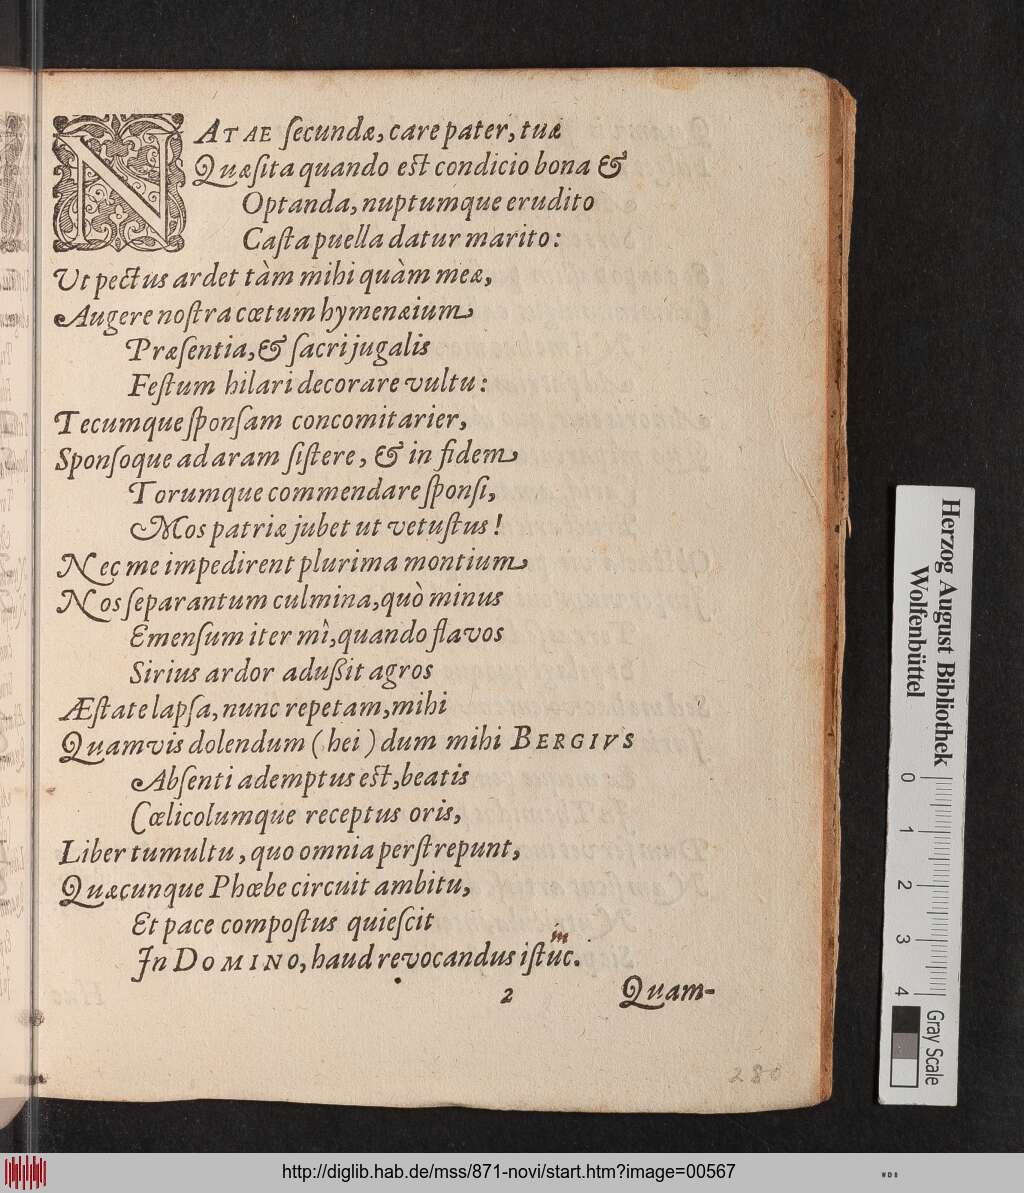 NATAE ſecundæ, care pater, tuæ
Quæſita quando est condicio bona &
Optanda, nuptumque erudito
Caſta puella datur marito:
Ut pectus ardet tàm mihi quàm meæ,
Augere noſtra cœtum hymenæium
Præſentia, & ſacri jugalis
Feſtum hilari decorare vultu:
Tecumque ſponſam concomitarier,
Sponſoque ad aram ſiſtere, & in fidem
Torumque commendare ſponſi,
Mos patriæ jubet ut vetuſtus!
Nec me impedirent plurima montium
Nos ſeparantum culmina, quò minus
Emenſum iter mî, quando flavos
Sirius ardor adußit agros
Æſtate lapſa, nunc repetam, mihi
Quamvis dolendum (hei) dum mihi BERGIVS
Abſenti ademptus est, beatis
Cœlicolumque receptus oris,
Liber tumultu, quo omnia perſtrepunt,
Quæcunque Phœbe circuit ambitu,
Et pace compoſtus quieſcit
In DOMINO, haud revocandus iſtuc.
in
2
Quam-
280
Herzog August Bibliothek
Wolfenbüttel
0 1 2 3 4
Gray Scale
http://diglib.hab.de/mss/871-novi/start.htm?image=00567
WDB